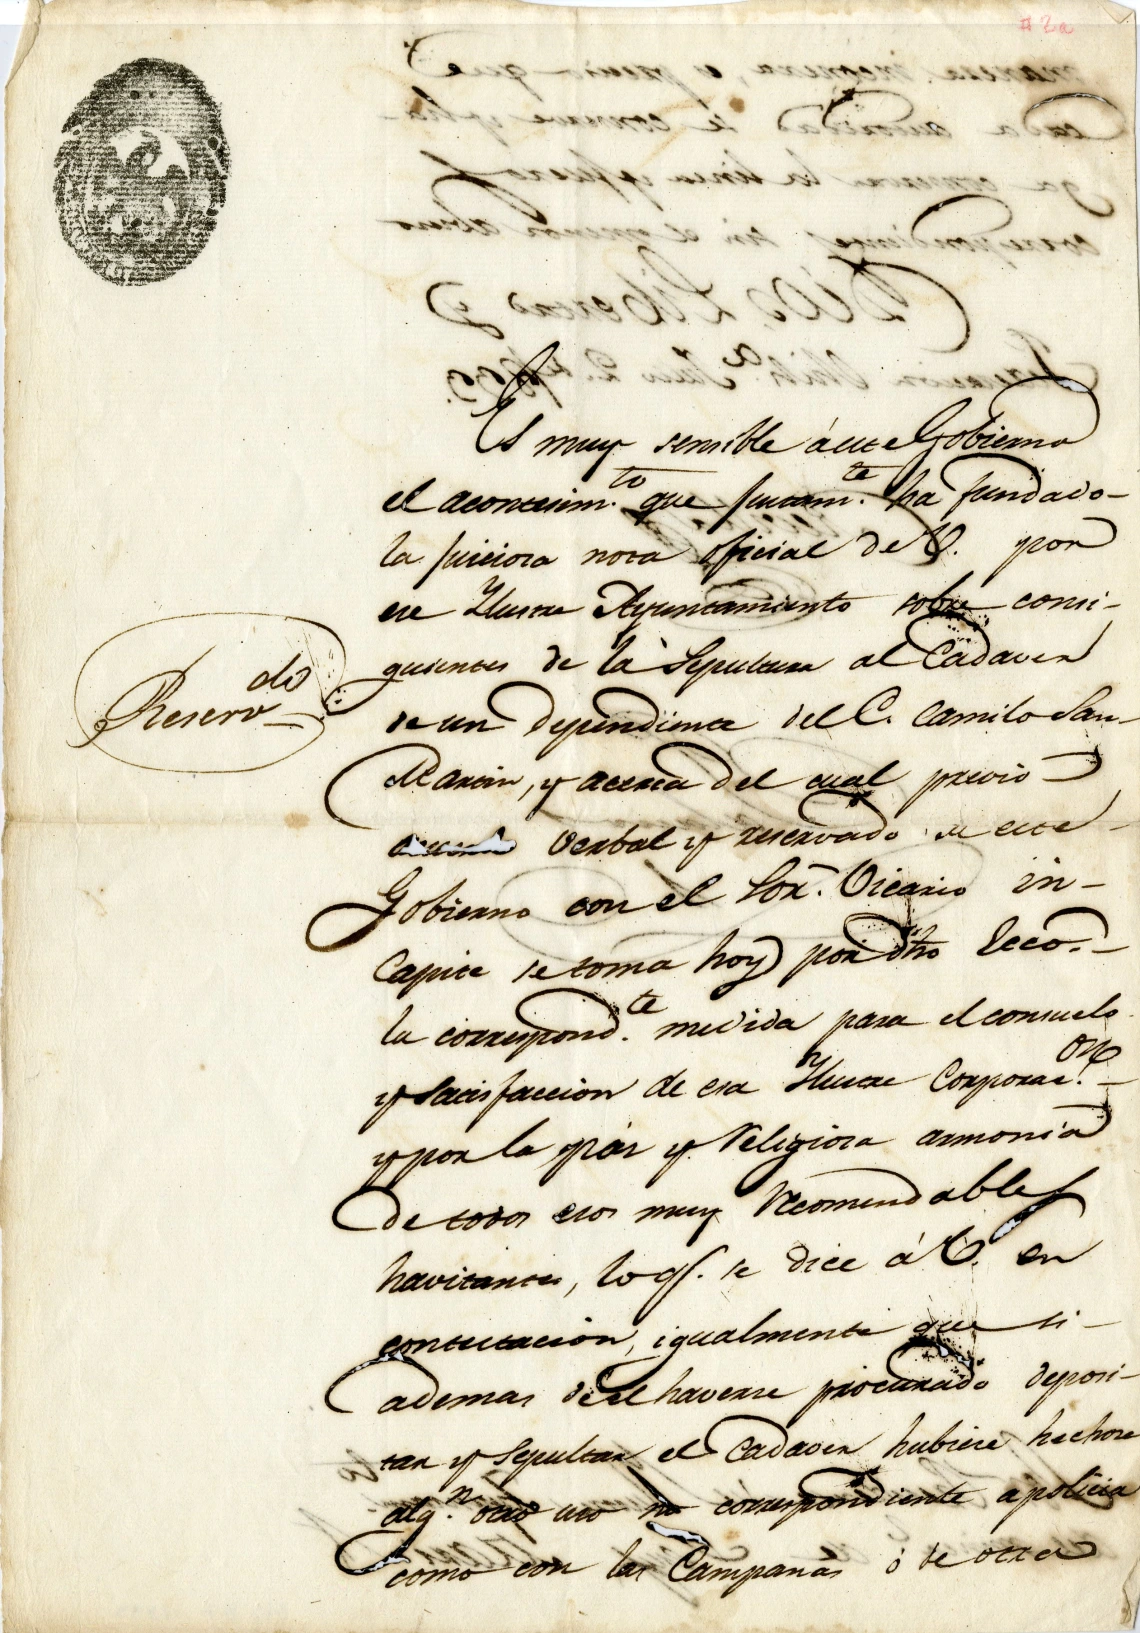 #2a
Es muy sensible á este Gobierno
el acontesim.to que justam.te ha fundado
la juiciosa nota oficial de V. por
ese Ylustre Ayuntamiento sobre consi-
guientes de la Sepultura al Cadaver
Reserv.do
de un dependiente del C. Camilo San-
Martin, y acerca del cual previo
acuerdo verbal y reservado de este
Gobierno con el Sor. Vicario in-
Capite se toma hoy por dho Ecco.
la correspond.te medida para el consuelo
y Satisfaccion de esa Ylustre Corporac.on
y por la páz y Religiosa armonia
de todos esos muy Recomendables
havitantes, lo q. se dice á V. en
contestacion, igualmente que si
ademas de el haverse procurado deposi-
tar y Sepultar el Cadaver hubiese hechose
alg.n otro uso no correspondiente a policia
como con las Campanas ó de otra